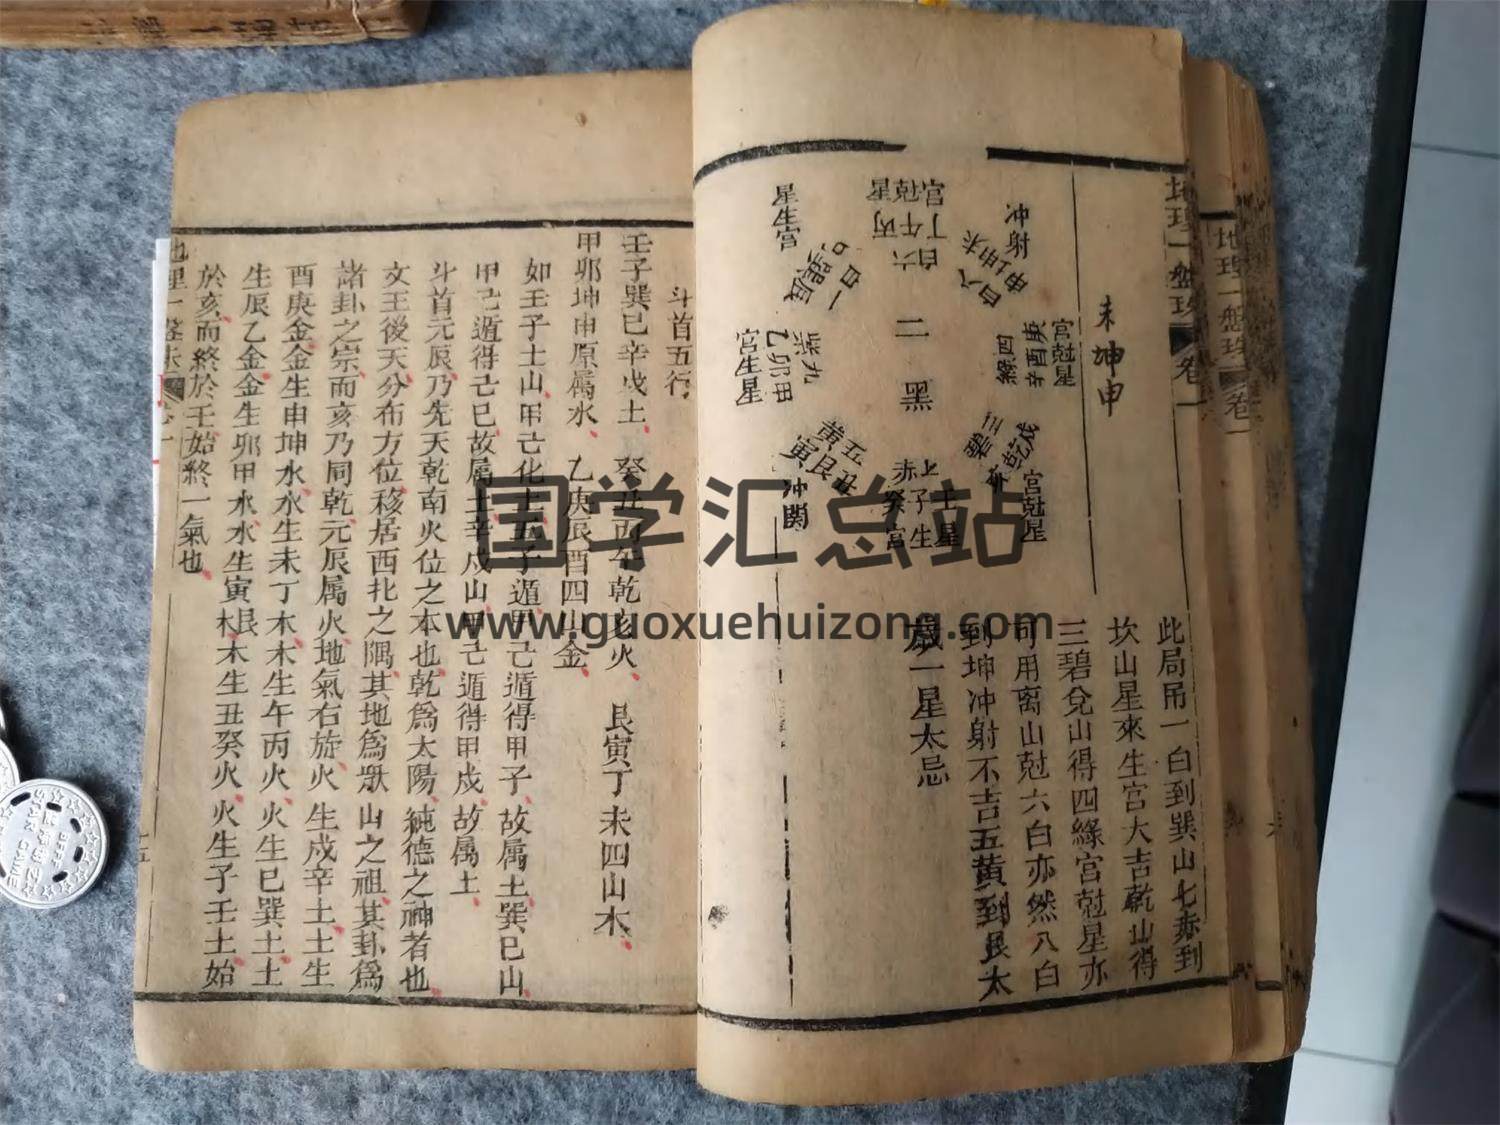 地理一盤珠 卷一
地理一盤珠 卷一
未坤申
此局吊一白到巽山七赤到
坎山星來生宮大吉乾山得
三碧兌山得四綠宮尅星亦
可用离山尅六白亦然八白
到坤冲射不吉五黄到艮太
歲一星大忌
二黑
宮尅星
丁午丙
六白
冲射
申坤未
八白
宮尅星
庚酉辛
四綠
宮尅星
戌乾亥
三碧
七赤
壬子癸
星生宮
五黄
丑艮寅
冲関
九紫
甲卯乙
宮生星
一白
辰巽巳
星生宮
斗首五行
壬子巽巳辛戌土 癸丑丙午乾亥火 艮寅丁未四山木
甲卯坤申原属水 乙庚辰酉四山金
如壬子土山甲己化土五子遁甲己遁得甲子故属土巽巳山
甲己遁得己巳故属土辛戌山甲己遁得甲戌故属土
斗首元辰乃先天乾南火位之本也乾爲太陽純德之神者也
文王後天分布方位移居西北之隅其地爲眾山之祖其卦爲
諸卦之宗而亥乃同乾元辰属火地氣右旋火生戌辛土土生
酉庚金金生申坤水水生未丁木木生午丙火火生巳巽土土
生辰乙金金生卯甲水水生寅艮木木生丑癸火火生子壬土始
於亥而終於壬始終一氣也
地理一盤珠 卷一
十五
国学汇总站
www.guoxuehuizong.com